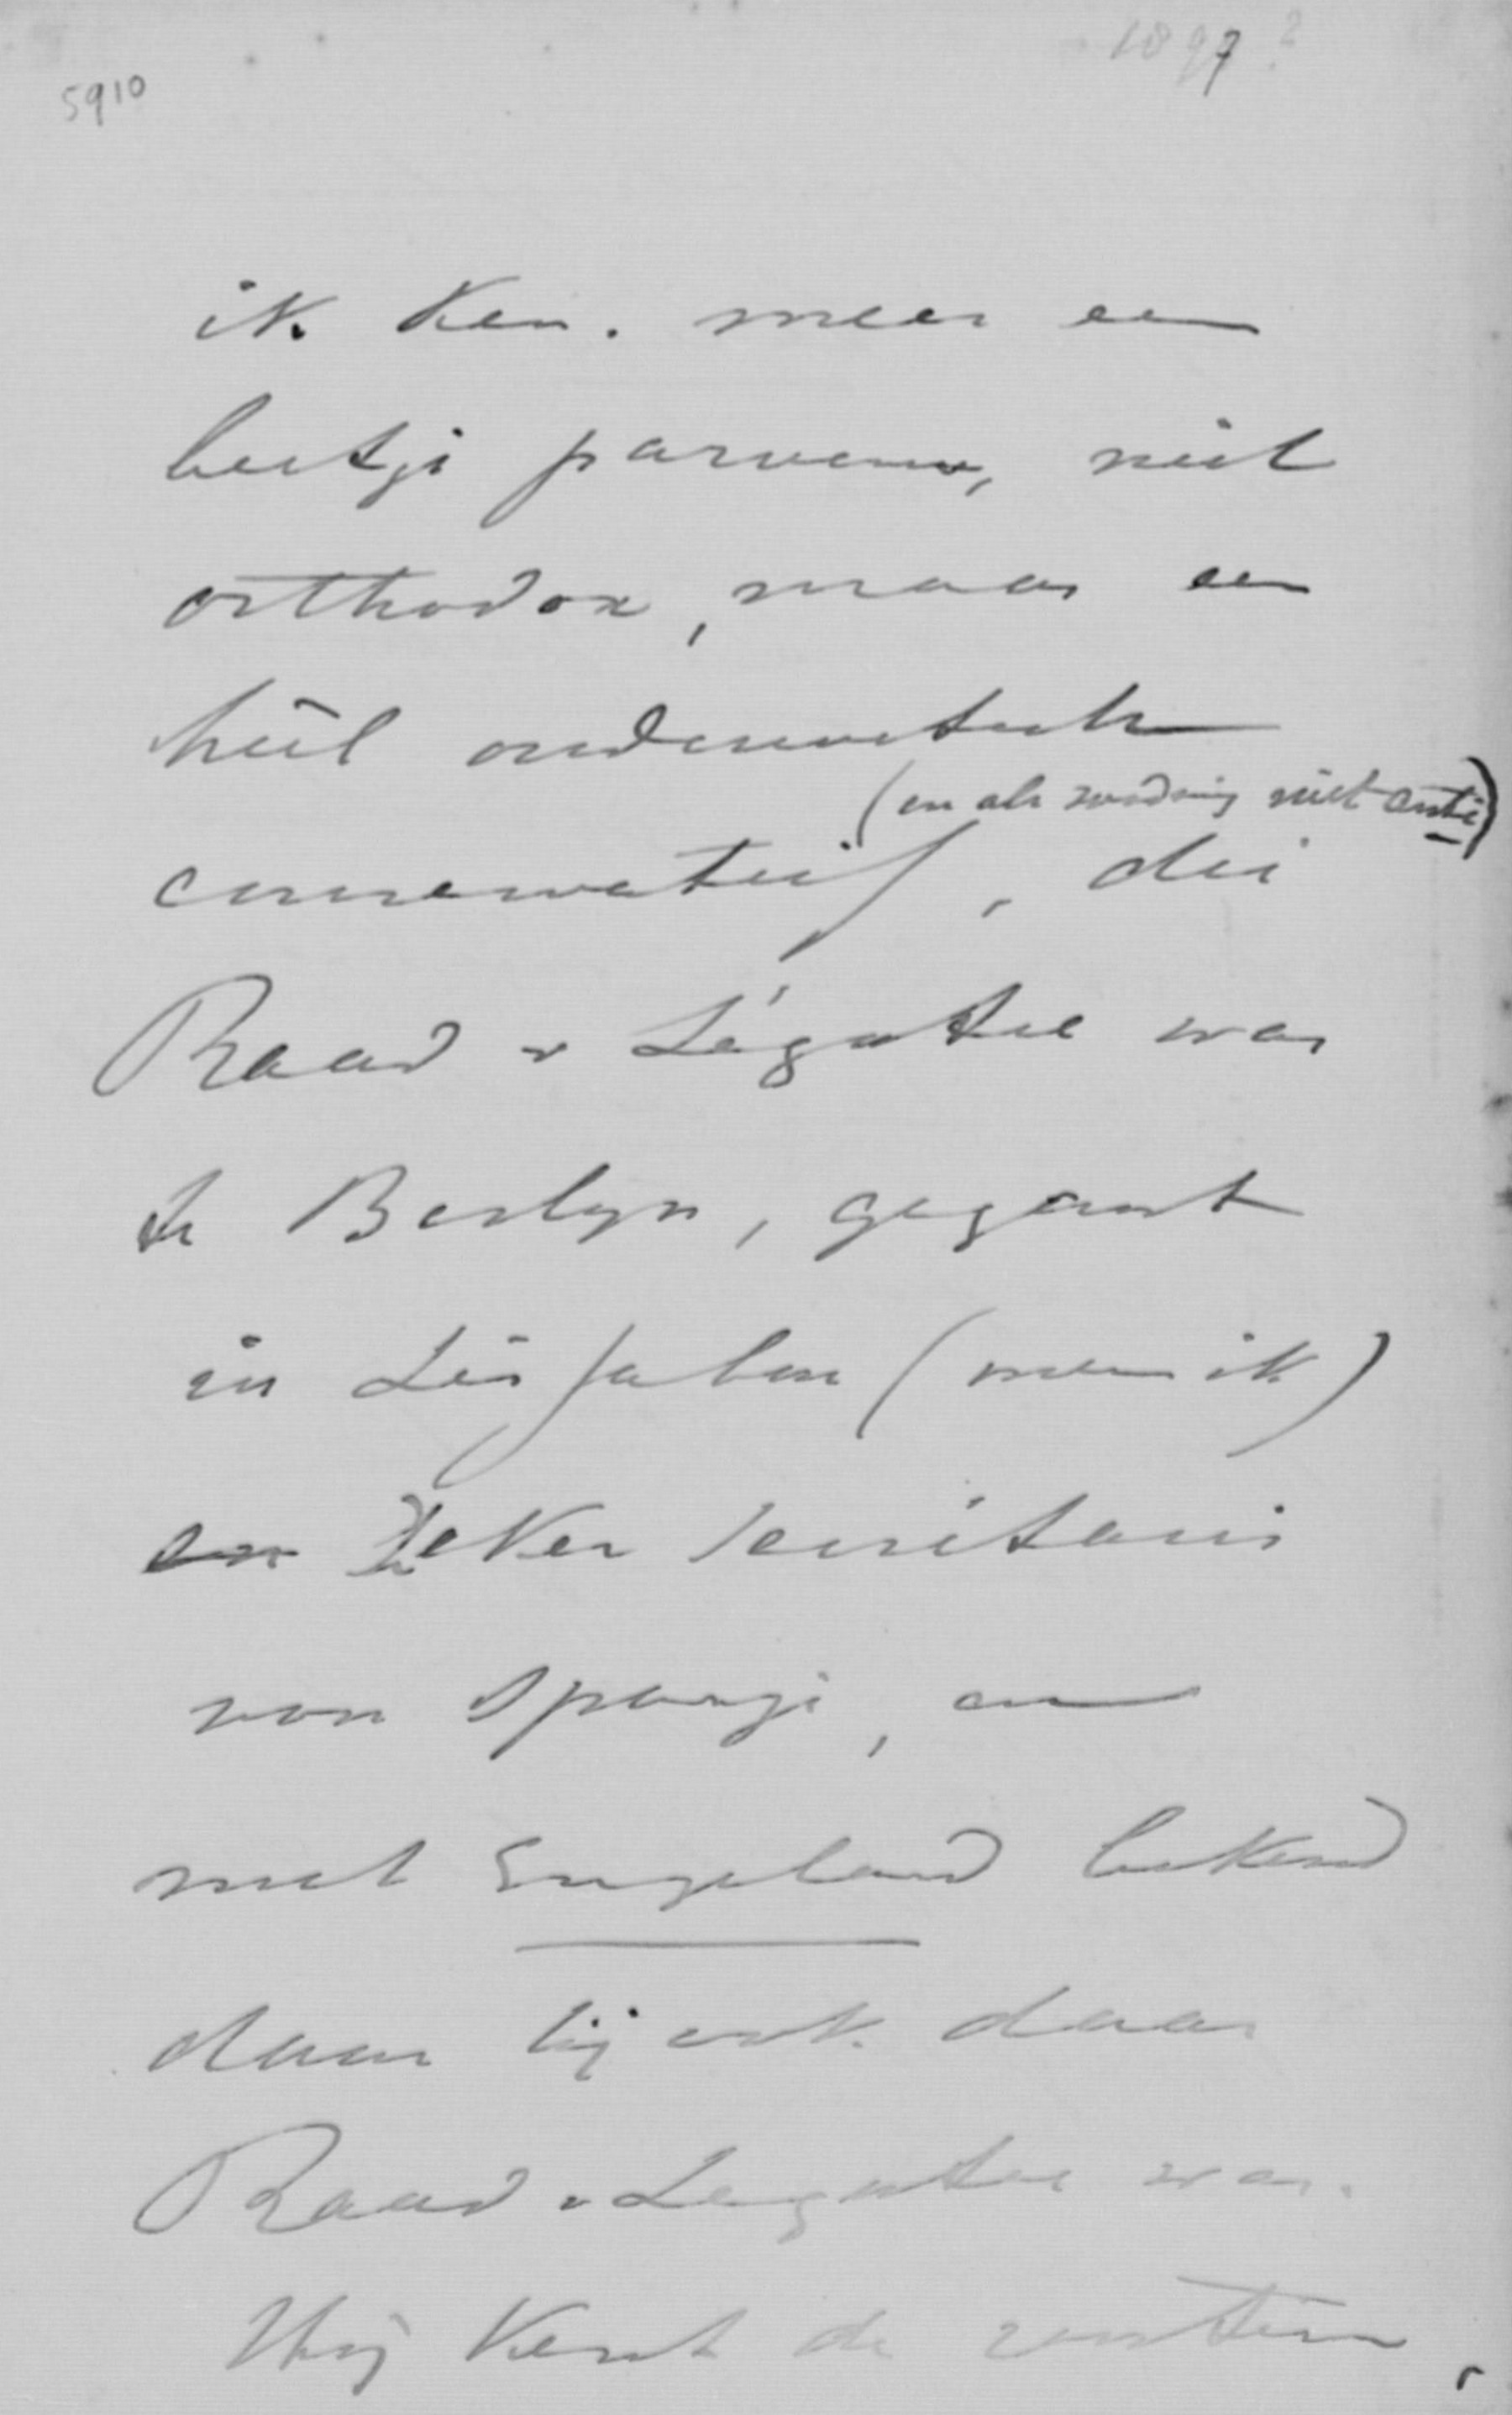 5910
1897?
ik ken. meer een
beetje parvenu, niet
orthodox, maar een
heel ouderwetsch
(en als zoodanig niet anti)
conservatief, die
Raad v Légatie was
te Berlyn, gezant
in Lissabon (meen ik)
en zeker secretaris
van Spanje, en
met Engeland bekend
daar hij ook daar
Raad v Legatie was.
Hij kent de routine,